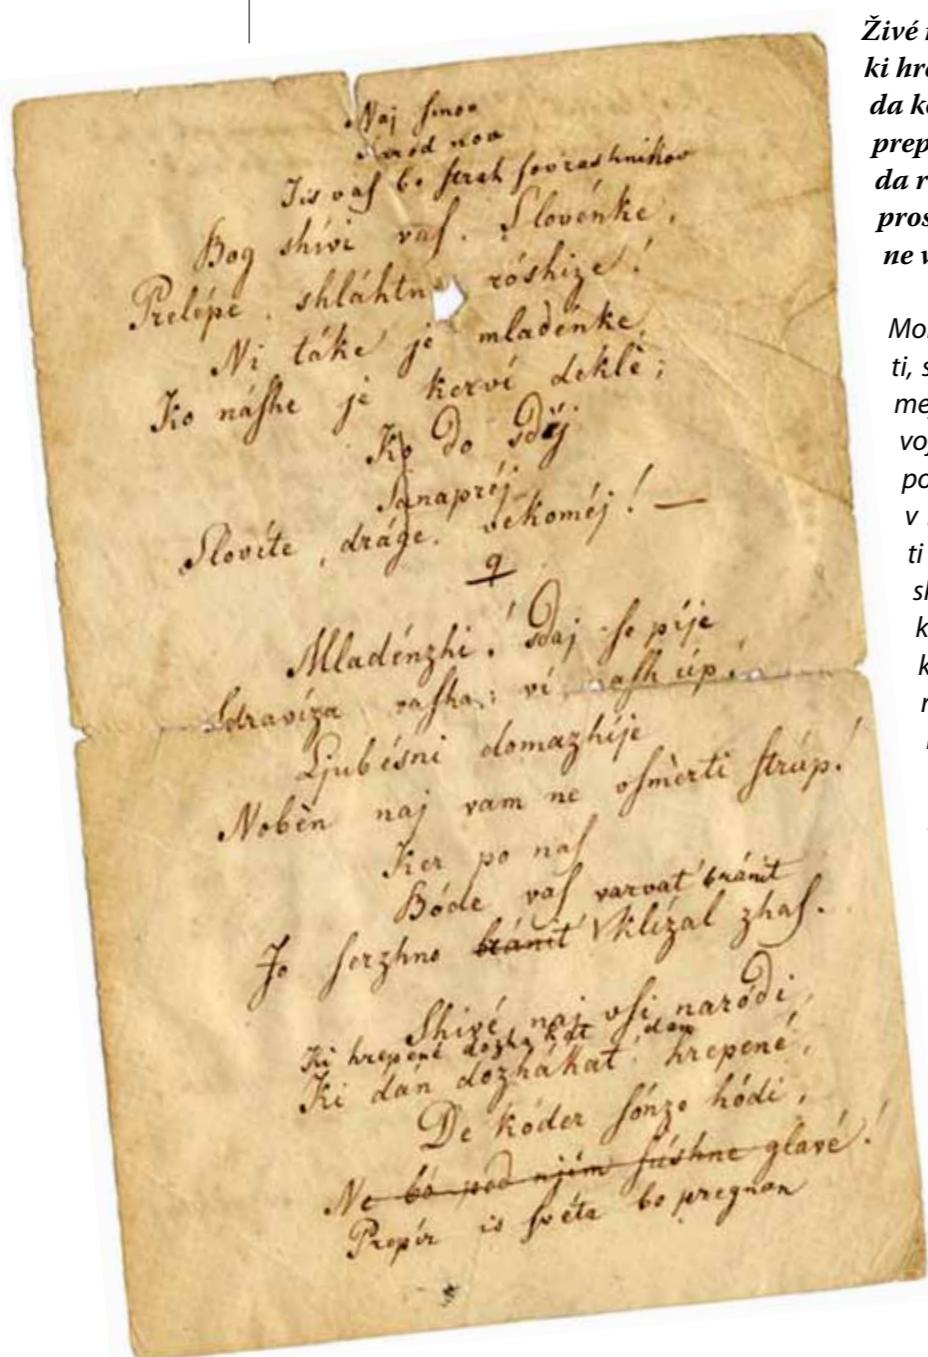 Naj ſinov
Narod nov
Jis vaſ bo ſtrah ſovrashnikov
Bog shívi vaſ, Slovénke,
Prelépe, shláhtne róshize!
Ni táke je mladénke,
Ko náſhe je kerví deklè;
Ko do sdèj
Sanapréj
Slovíte, dráge, vekoméj! —
9
Mladénzhi! sdaj ſe píje
Sdravíza vaſha; ví naſh úp!
Ljubésni domazhíje
Nobèn naj vam ne vſmèrti ſtrúp!
Ker po naſ
Bóde vaſ varvat bránit
Jo ſerzhno bránit klízal zhaſ.
Shivé naj vſi naródi,
Ki hrepené dozhakat dan
Ki dán dozhákat hrepené,
De kóder ſónze hódi,
Ne bo pod njim ſúshne glavé!
Prepír is ſvéta bo pregnan
Živé
ki hre
da ko
prep
da r
pros
ne v
Mor
ti, s
mej
voj
po
v
ti
sk
k
k